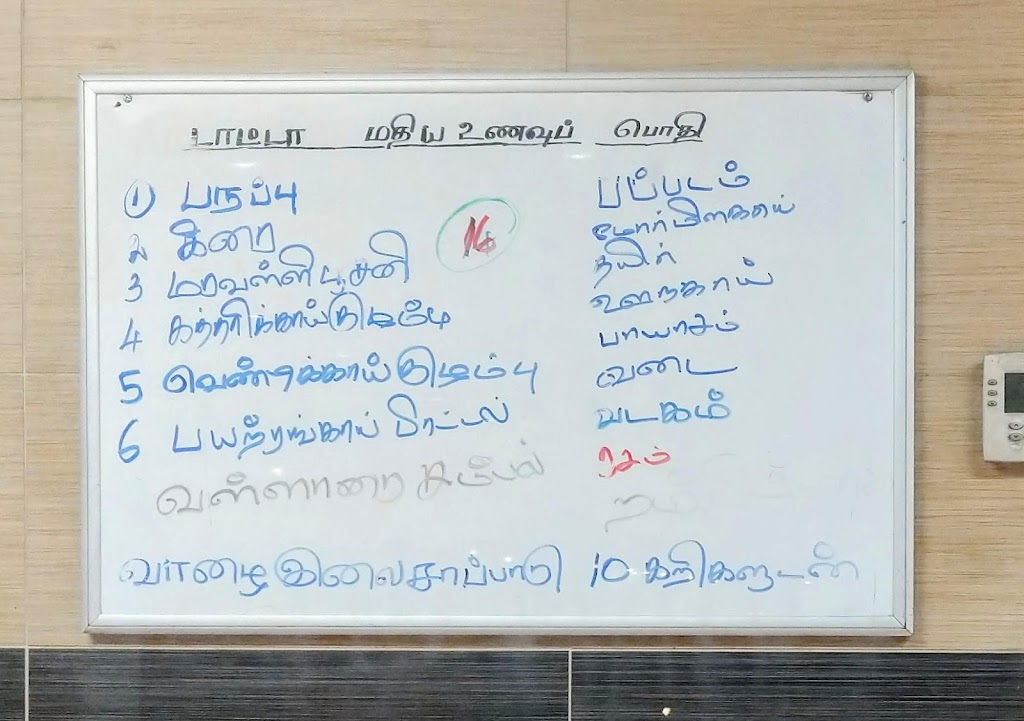 டாட்டா மதிய உணவுப் பொதி
1 பருப்பு
2 கீரை
3 மரவள்ளி பூசனி
4 கத்தரிக்காய் குழம்பு
5 வெண்டிக்காய் குழம்பு
6 பயற்றங்காய் பிரட்டல்
வள்ளாரை சம்பல்
16
பப்படம்
மோர் மிளகாய்
தயிர்
ஊறுகாய்
பாயாசம்
வடை
வடகம்
ரசம்
வாழை இலை சாப்பாடு 10 கறிகளுடன்